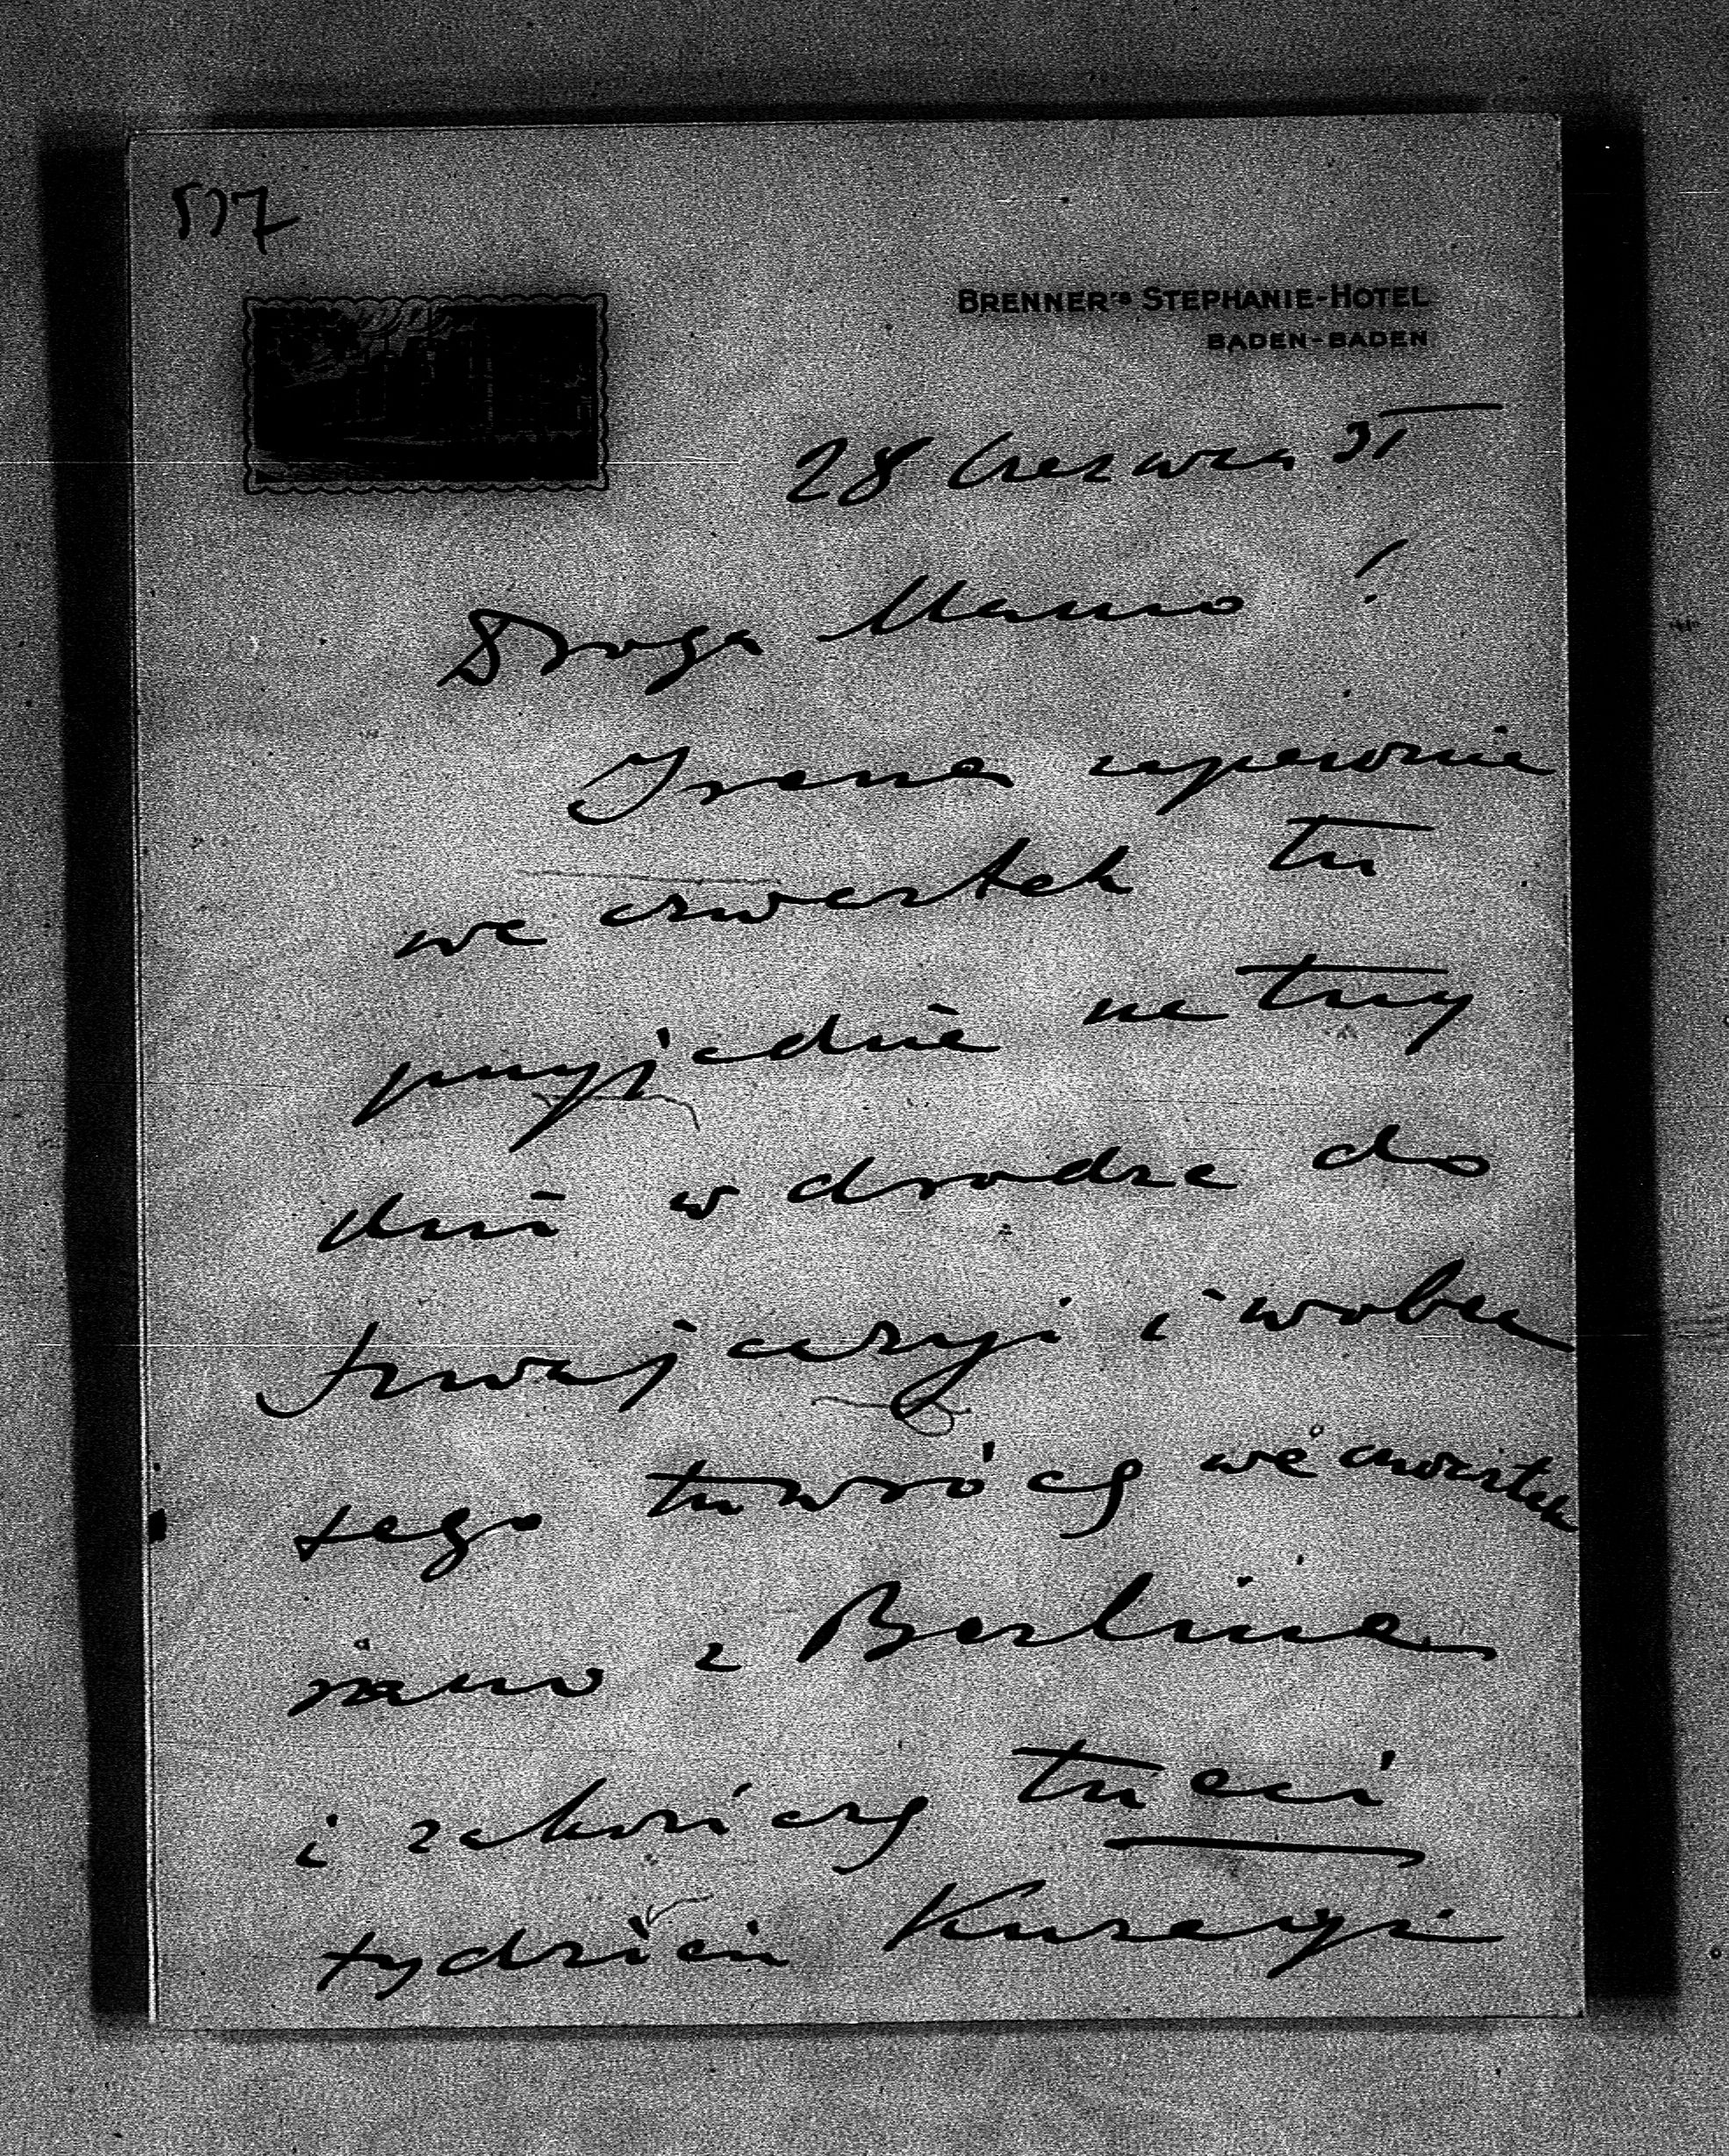 BRENNER'S STEPHANIE-HOTEL
BADEN-BADEN
28 Czerwca
Droga Mamo!
Irena zapewnie
we czwartek tu
przyjedzie na trzy
dni w drodze do
Szwajcaryi i wobec
tego tu wrócę we czwartek
rano z Berlina
i zakończę trzeci
tydzień Kuracyi